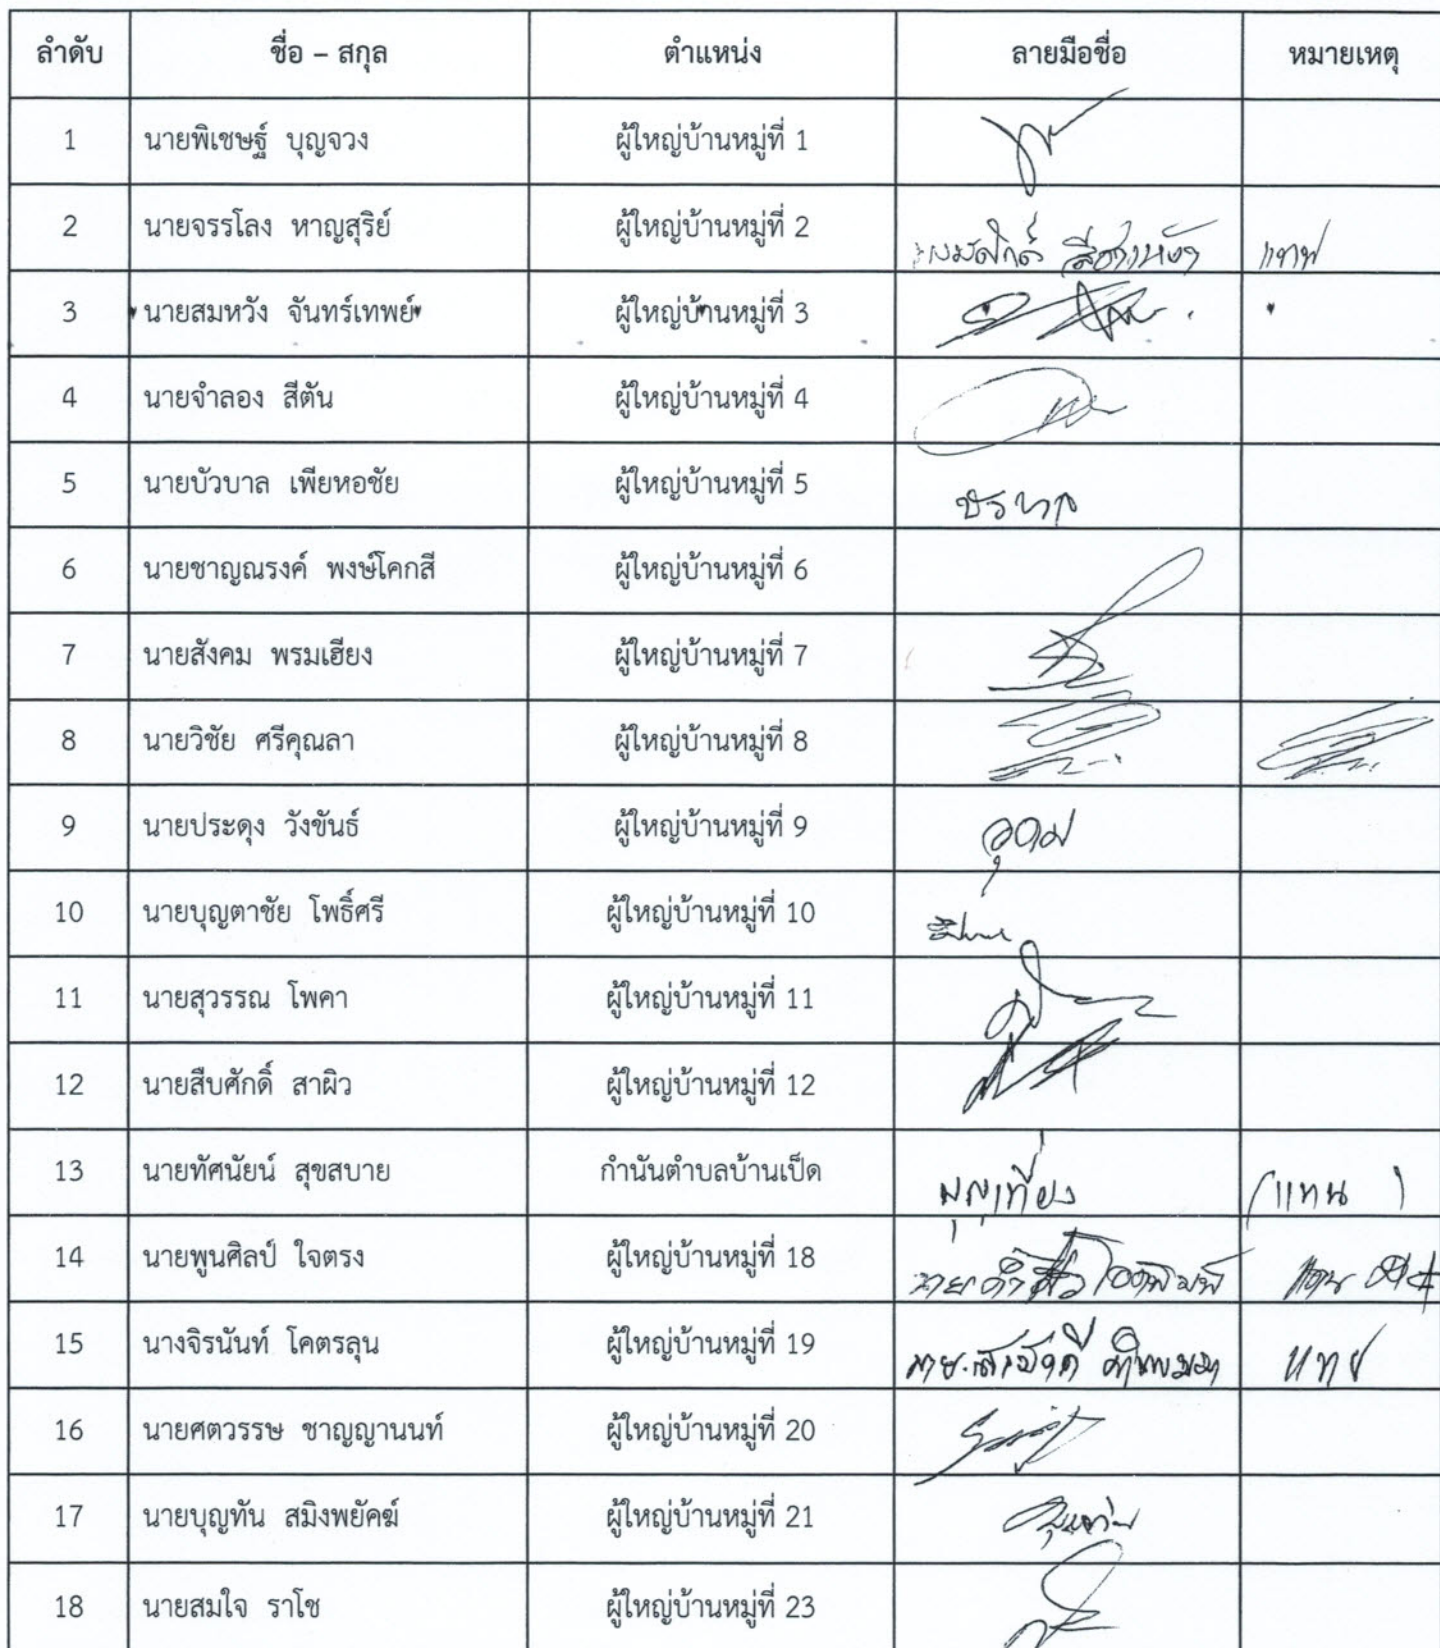 ลำดับ ชื่อ – สกุล ตำแหน่ง ลายมือชื่อ หมายเหตุ
1 นายพิเชษฐ์ บุญจวง ผู้ใหญ่บ้านหมู่ที่ 1
2 นายจรรโลง หาญสุริย์ ผู้ใหญ่บ้านหมู่ที่ 2 แทน
3 นายสมหวัง จันทร์เทพย์ ผู้ใหญ่บ้านหมู่ที่ 3
4 นายจำลอง สีตัน ผู้ใหญ่บ้านหมู่ที่ 4
5 นายบัวบาล เพียหอชัย ผู้ใหญ่บ้านหมู่ที่ 5
6 นายชาญณรงค์ พงษ์โคกสี ผู้ใหญ่บ้านหมู่ที่ 6
7 นายสังคม พรมเฮียง ผู้ใหญ่บ้านหมู่ที่ 7
8 นายวิชัย ศรีคุณลา ผู้ใหญ่บ้านหมู่ที่ 8
9 นายประดุง วังขันธ์ ผู้ใหญ่บ้านหมู่ที่ 9 อุดม
10 นายบุญตาชัย โพธิ์ศรี ผู้ใหญ่บ้านหมู่ที่ 10
11 นายสุวรรณ โพคา ผู้ใหญ่บ้านหมู่ที่ 11
12 นายสืบศักดิ์ สาผิว ผู้ใหญ่บ้านหมู่ที่ 12
13 นายทัศนัยน์ สุขสบาย กำนันตำบลบ้านเป็ด บุญเที่ยง (แทน)
14 นายพูนศิลป์ ใจตรง ผู้ใหญ่บ้านหมู่ที่ 18 นาย แทน
15 นางจิรนันท์ โคตรลุน ผู้ใหญ่บ้านหมู่ที่ 19 นาย แทน
16 นายศตวรรษ ชาญญานนท์ ผู้ใหญ่บ้านหมู่ที่ 20
17 นายบุญทัน สมิงพยัคฆ์ ผู้ใหญ่บ้านหมู่ที่ 21
18 นายสมใจ ราโช ผู้ใหญ่บ้านหมู่ที่ 23